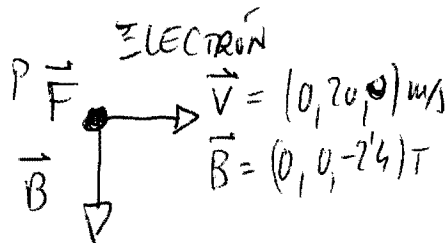 ELECTRÓN
P F⃗ V⃗ = (0, 20, 0) m/s
B⃗ B⃗ = (0, 0, -2'4) T